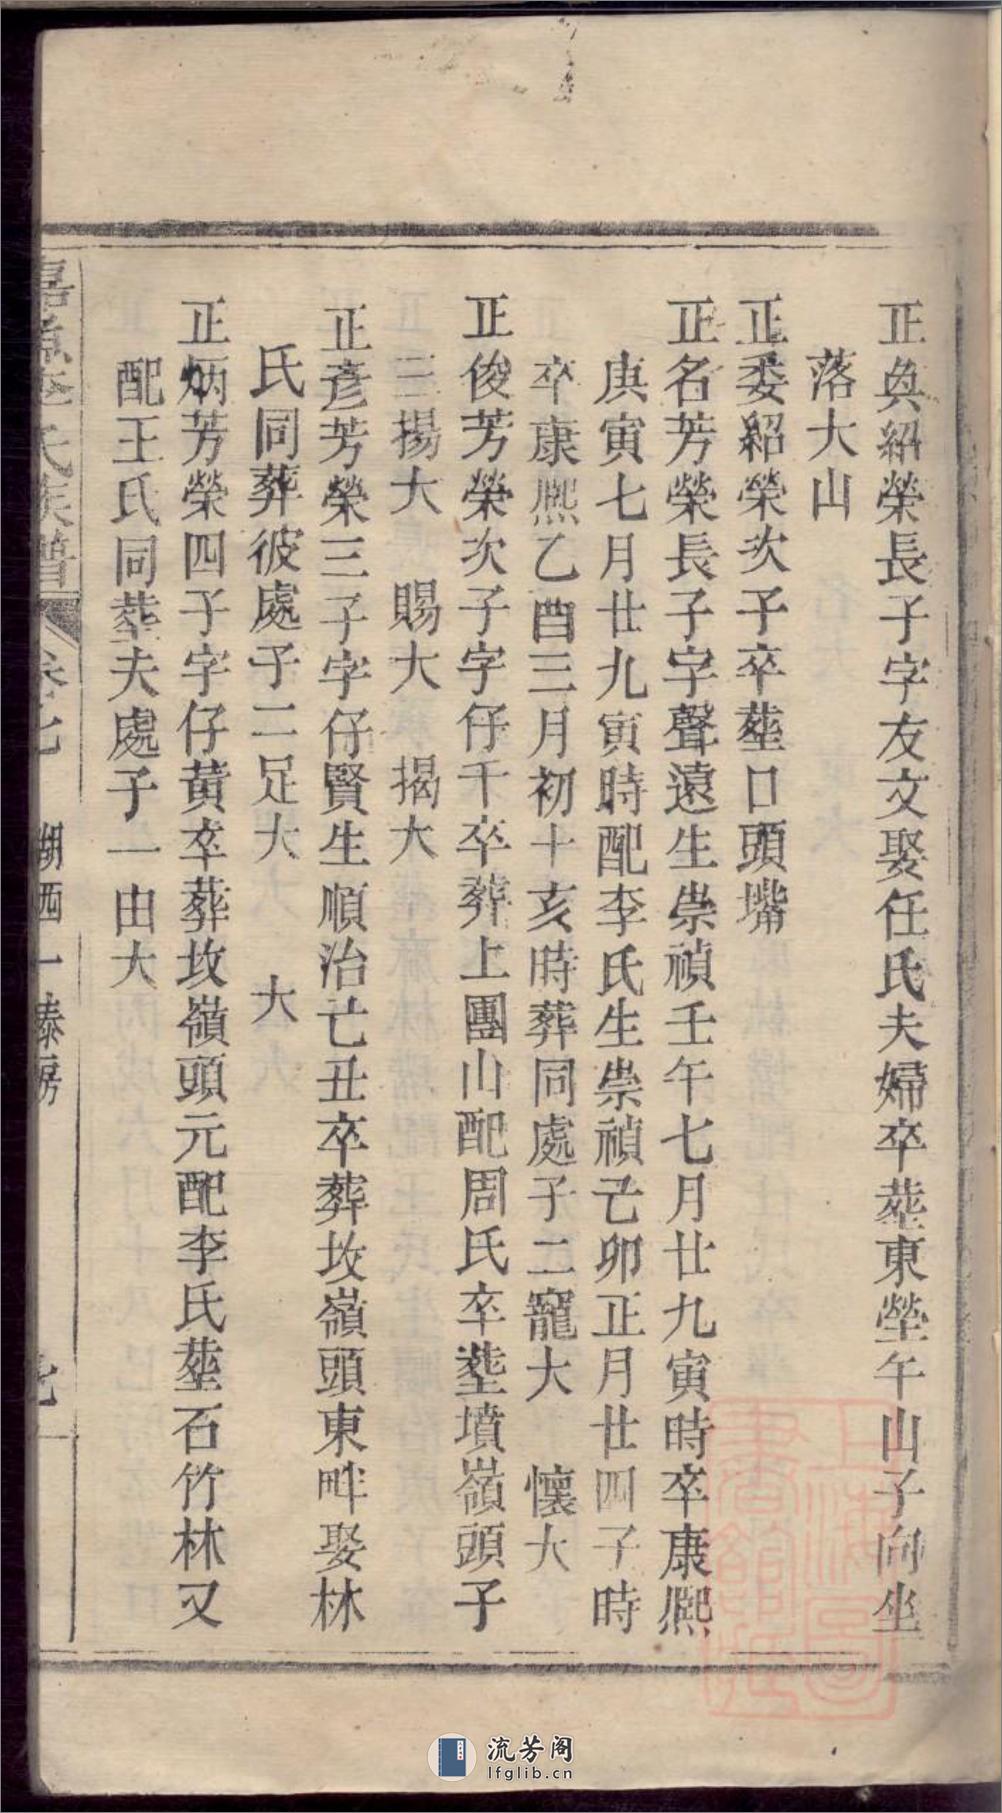 正奐紹榮長子字友文娶任氏夫婦卒塟東塋午山子向坐
落大山
正委紹榮次子卒塟口頭嘴
正名芳榮長子字聲遠生崇禎壬午七月廿九寅時卒康熈
庚寅七月廿九寅時配李氏生崇禎己卯正月廿四子時
卒康熈乙酉三月初十亥時葬同處子二寵大 懷大
正俊芳榮次子字仔千卒葬上團山配周氏卒塟墳嶺頭子
三揚大 賜大 揭大
正彦芳榮三子字仔賢生順治亡丑卒葬坟嶺頭東畔娶林
氏同葬彼處子二足大 大
正炳芳榮四子字仔黃卒葬坟嶺頭元配李氏塟石竹林又
配王氏同塟夫處子一由大
氏族譜 卷七 湖西一榛房
上海圖書館藏
流芳阁
lfglib.cn